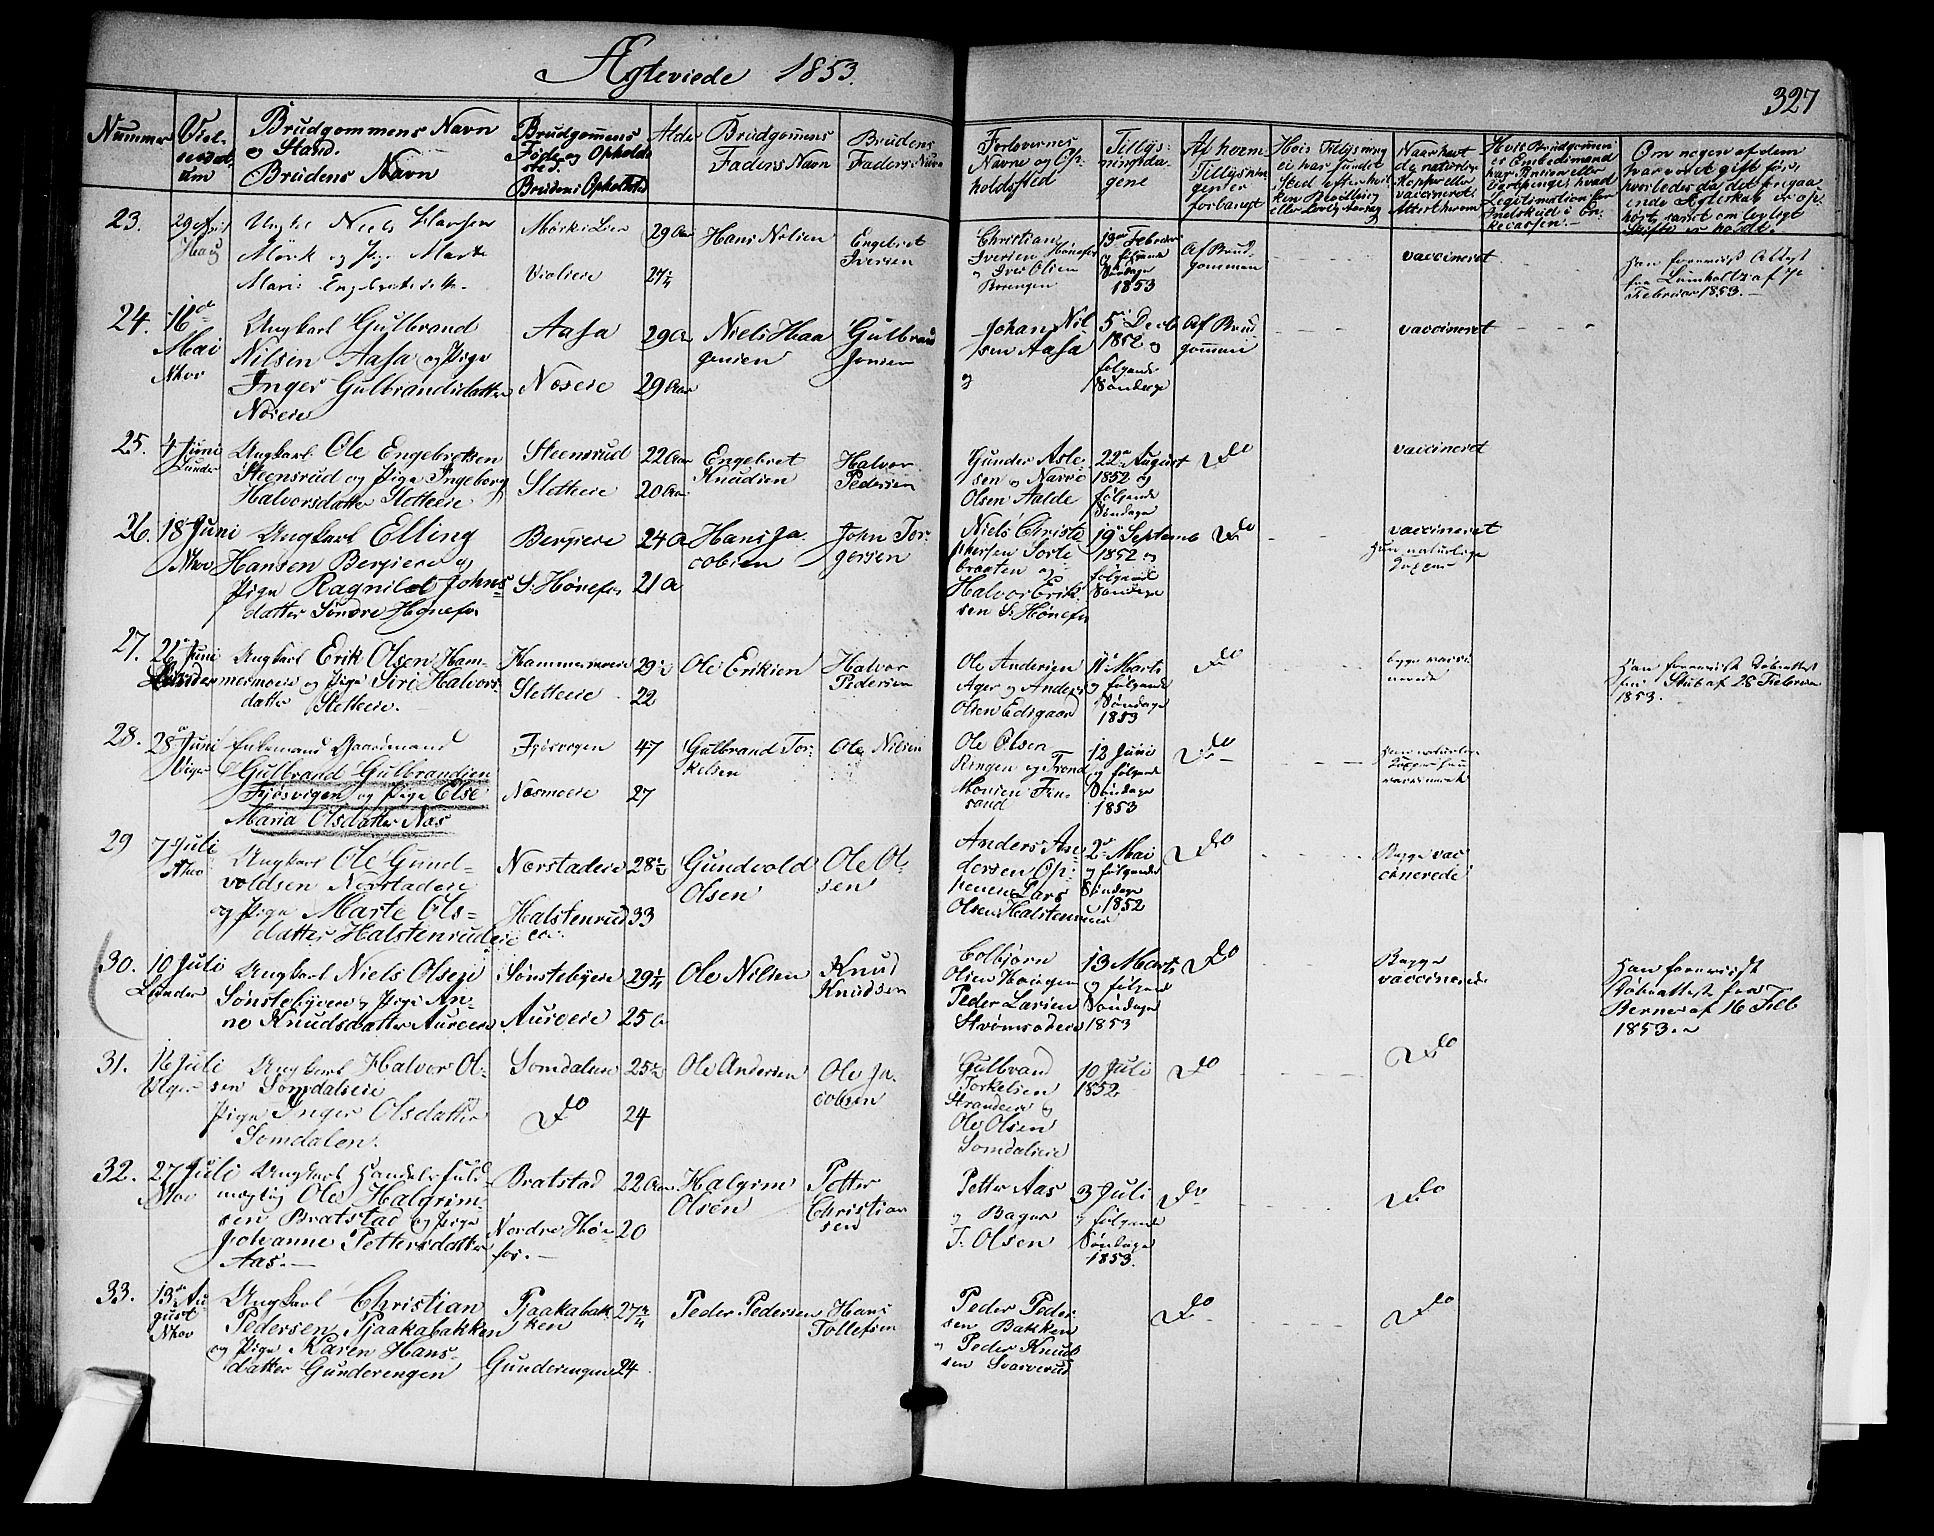 Ægteviede 1853.
327
Nummer
Viel-
sesdat-
um
Brudgommens Navn
og Stand.
Brudens Navn
Brudgomens
Føde og Opholds
sted.
Brudens Opholdsted
Alder
Brudgomens
Faders Navn
Brudens
Faders Navn
Forlovernes
Navne og Op-
holdsted
Tillys-
ningsda-
gene
Af hvem
Tillysnin-
gen er
forlangt
23.
29 April
Haug
Mørk og Pige Marte
Mari Engebretsdatter
Viulseie
29 Aar
Hans Nilsen
Engebret
Iversen
Christian
Iversen Hønefos
og Iver Olsen
13de Februar
og følgende
Søndage
1853
Af Brud-
gommen
vaccineret
Februar 1853.
24.
16de
Mai
Nhov
Ungkarl Gulbrand
Nilsen Aasa og Pige
Inger Gulbrandsdatter
Nøseie
Aasa
Nøseie
29 Aar
29 Aar
Niels Haa
gensen
Gulbrand
Jensen
Johan Nil
sen Aasa
og
5te Decb
1852 og
følgende
Søndage
Af Brud
gommen
vaccineret
25.
4 Juni
Lunder
Ungkarl Ole Engebretsen
Steensrud og Pige Ingeborg
Halvorsdatter Sletteeie
Steensrud
Sletteeie
22 Aar
20 Aar
Engebret
Knudsen
Halvor
Pedersen
Gunder Asle
sen og Narve
Olsen Aalde
22de August
1852 og
følgende
Søndage
Do
vaccineret
26.
18 Juni
Nhov
Ungkarl Elling
Hansen Bergseie og
Pige Ragnild Johns-
datter Søndre Hønefos
Bergseie
S. Hønefos
24 A
21 A
Hans Ja-
cobsen
John Tor-
gersen
Niels Christo
phersen Sorte
braaten og
Halvor Erik
sen S. Hønefos
19de Septemb
1852 og
følgende
Søndage
Do
vaccineret
Hun naturlige
27.
Juni
Lunder
Ungkarl Erik Olsen Ham-
mermoeie og Pige Siri Halvors
datter Sletteeie.
Hammermoeie
Sletteeie
22
Ole Eriksen
Halvor
Pedersen
Ole Andersen
Ager og Anders
Olsen Edsgaard
Marts
og følgende
Søndage
1853
Do
begge vacci
nerede
Han foreviist Døbeattest
fra Stub af 28 Februar
1853.
28.
28de Juni
Enkemand Gaardmand
Gulbrand Gulbrandsen
Fjøsvigen og Pige Else
Maria Olsdatter Næs
Fjøsvigen
Næsmoeie
47
27
Gulbrand Tor-
kelsen
Ole Nilsen
Ole Olsen
Ringen og Trond
12 Juni
og følgende
Søndage
1853
Do
vaccineret
29
7 Juli
Nhov
Ungkarl Ole Gund-
voldsen Nørstadeie
og Pige Marte Ols-
datter Halstenrudeie
Nørstadeie
Halstenrud
eie.
28½
33
Gundvold
Olsen
Ole Ol-
sen
Anders An-
dersen Op-
Lars
Olsen Halstenrud
2de Mai
og følgende
Søndage
1852
Do
Begge vac
cinerede
30.
10 Juli
Lunder
Ungkarl Niels Olsen
Sønstebyeie og Pige An-
ne Knudsdatter Aureeie
Sønstebyeie
Aureeie
29¼
Ole Nilsen
Knud
Knudsen
Colbjørn
Olsen Haugen
Peder Larsen
Strømsodeie
13 Marts
og følgende
Søndage
1853
Do
Begge
vaccinerede
Han foreviist
Døbeattest fra
Berner af 16 Feb
1853.
31.
16 Juli
Viger
Ungkarl Halvor Ol-
sen Somdalseie
Pige Inger Olsdatter
Somdalen.
Somdalen
Do
25½
24
Ole Andersen
Ole Ja-
cobsen
Gulbrand
Torkelsen
Strandeeie og
Ole Olsen
Somdalseie
10 Juli
1852
Do
Do
32.
27 Juli
Nhov
Ungkarl Handelsfuld-
mægtig Ole Halgrim-
sen Bratstad og Pige
Johanne Pettersdatter
Aas.
Bratstad
Nordre Høne
fos.
22 Aar
20
Halgrim
Olsen
Petter
Christian
sen
Petter Aas
og Bager
T. Olsen
3 Juli
og følgende
Søndage
1853.
Do
Do
33.
13de Au-
gust
Nhov
Ungkarl Christian
Pedersen Pjaakabakken
og Pige Karen Hans-
datter Gunderengen
Pjaakabak-
ken
Gunderengen
27¾
24
Peder Pedersen
Hans
Tollefsen
Peder Peder-
sen Bakken
og Peder Knud
sen Svarverud
Do
Do